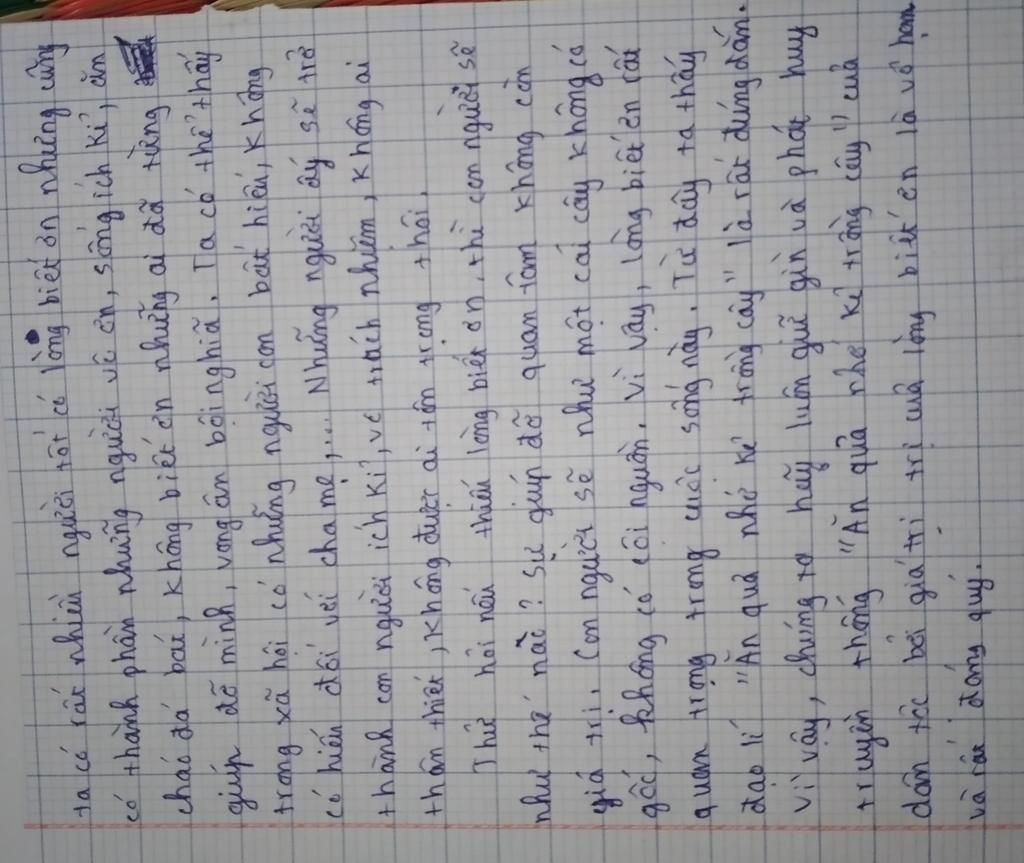 ta có rất nhiều người tốt có lòng biết ơn nhưng cũng
có thành phần những người vô ơn, sống ích kỉ, ăn
cháo đá bát, không biết ơn những ai đã từng
giúp đỡ mình, vong ân bội nghĩa. Ta có thể thấy
trong xã hội có những người con bất hiếu, không
có hiếu đối với cha mẹ,... Những người ấy sẽ trở
thành con người ích kỉ, vô trách nhiệm, không ai
thân thiết, không được ai tôn trọng thôi.
Thử hỏi nếu thiếu lòng biết ơn, thì con người sẽ
như thế nào? Sự giúp đỡ quan tâm không còn
giá trị. Con người sẽ như một cái cây không có
gốc, không có cội nguồn. Vì vậy, lòng biết ơn rất
quan trọng trong cuộc sống này. Từ đây ta thấy
đạo lí "Ăn quả nhớ kẻ trồng cây" là rất đúng đắn.
Vì vậy, chúng ta hãy luôn giữ gìn và phát huy
truyền thống "Ăn quả nhớ kẻ trồng cây" của
dân tộc bởi giá trị trị của lòng biết ơn là vô hạn
và rất đáng quý.